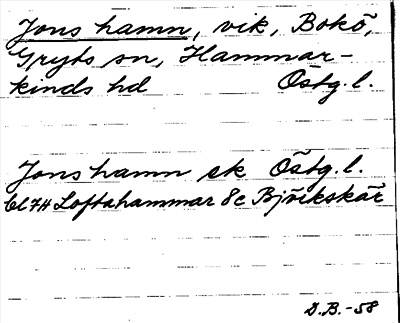 Jons hamn, vik, Bokö,
Gryts sn, Hammar-
kinds hd Östg. l.
Jonshamn ek Östg. l.
bl 7H Loftahammar 8c Björkskär
D.B. -58